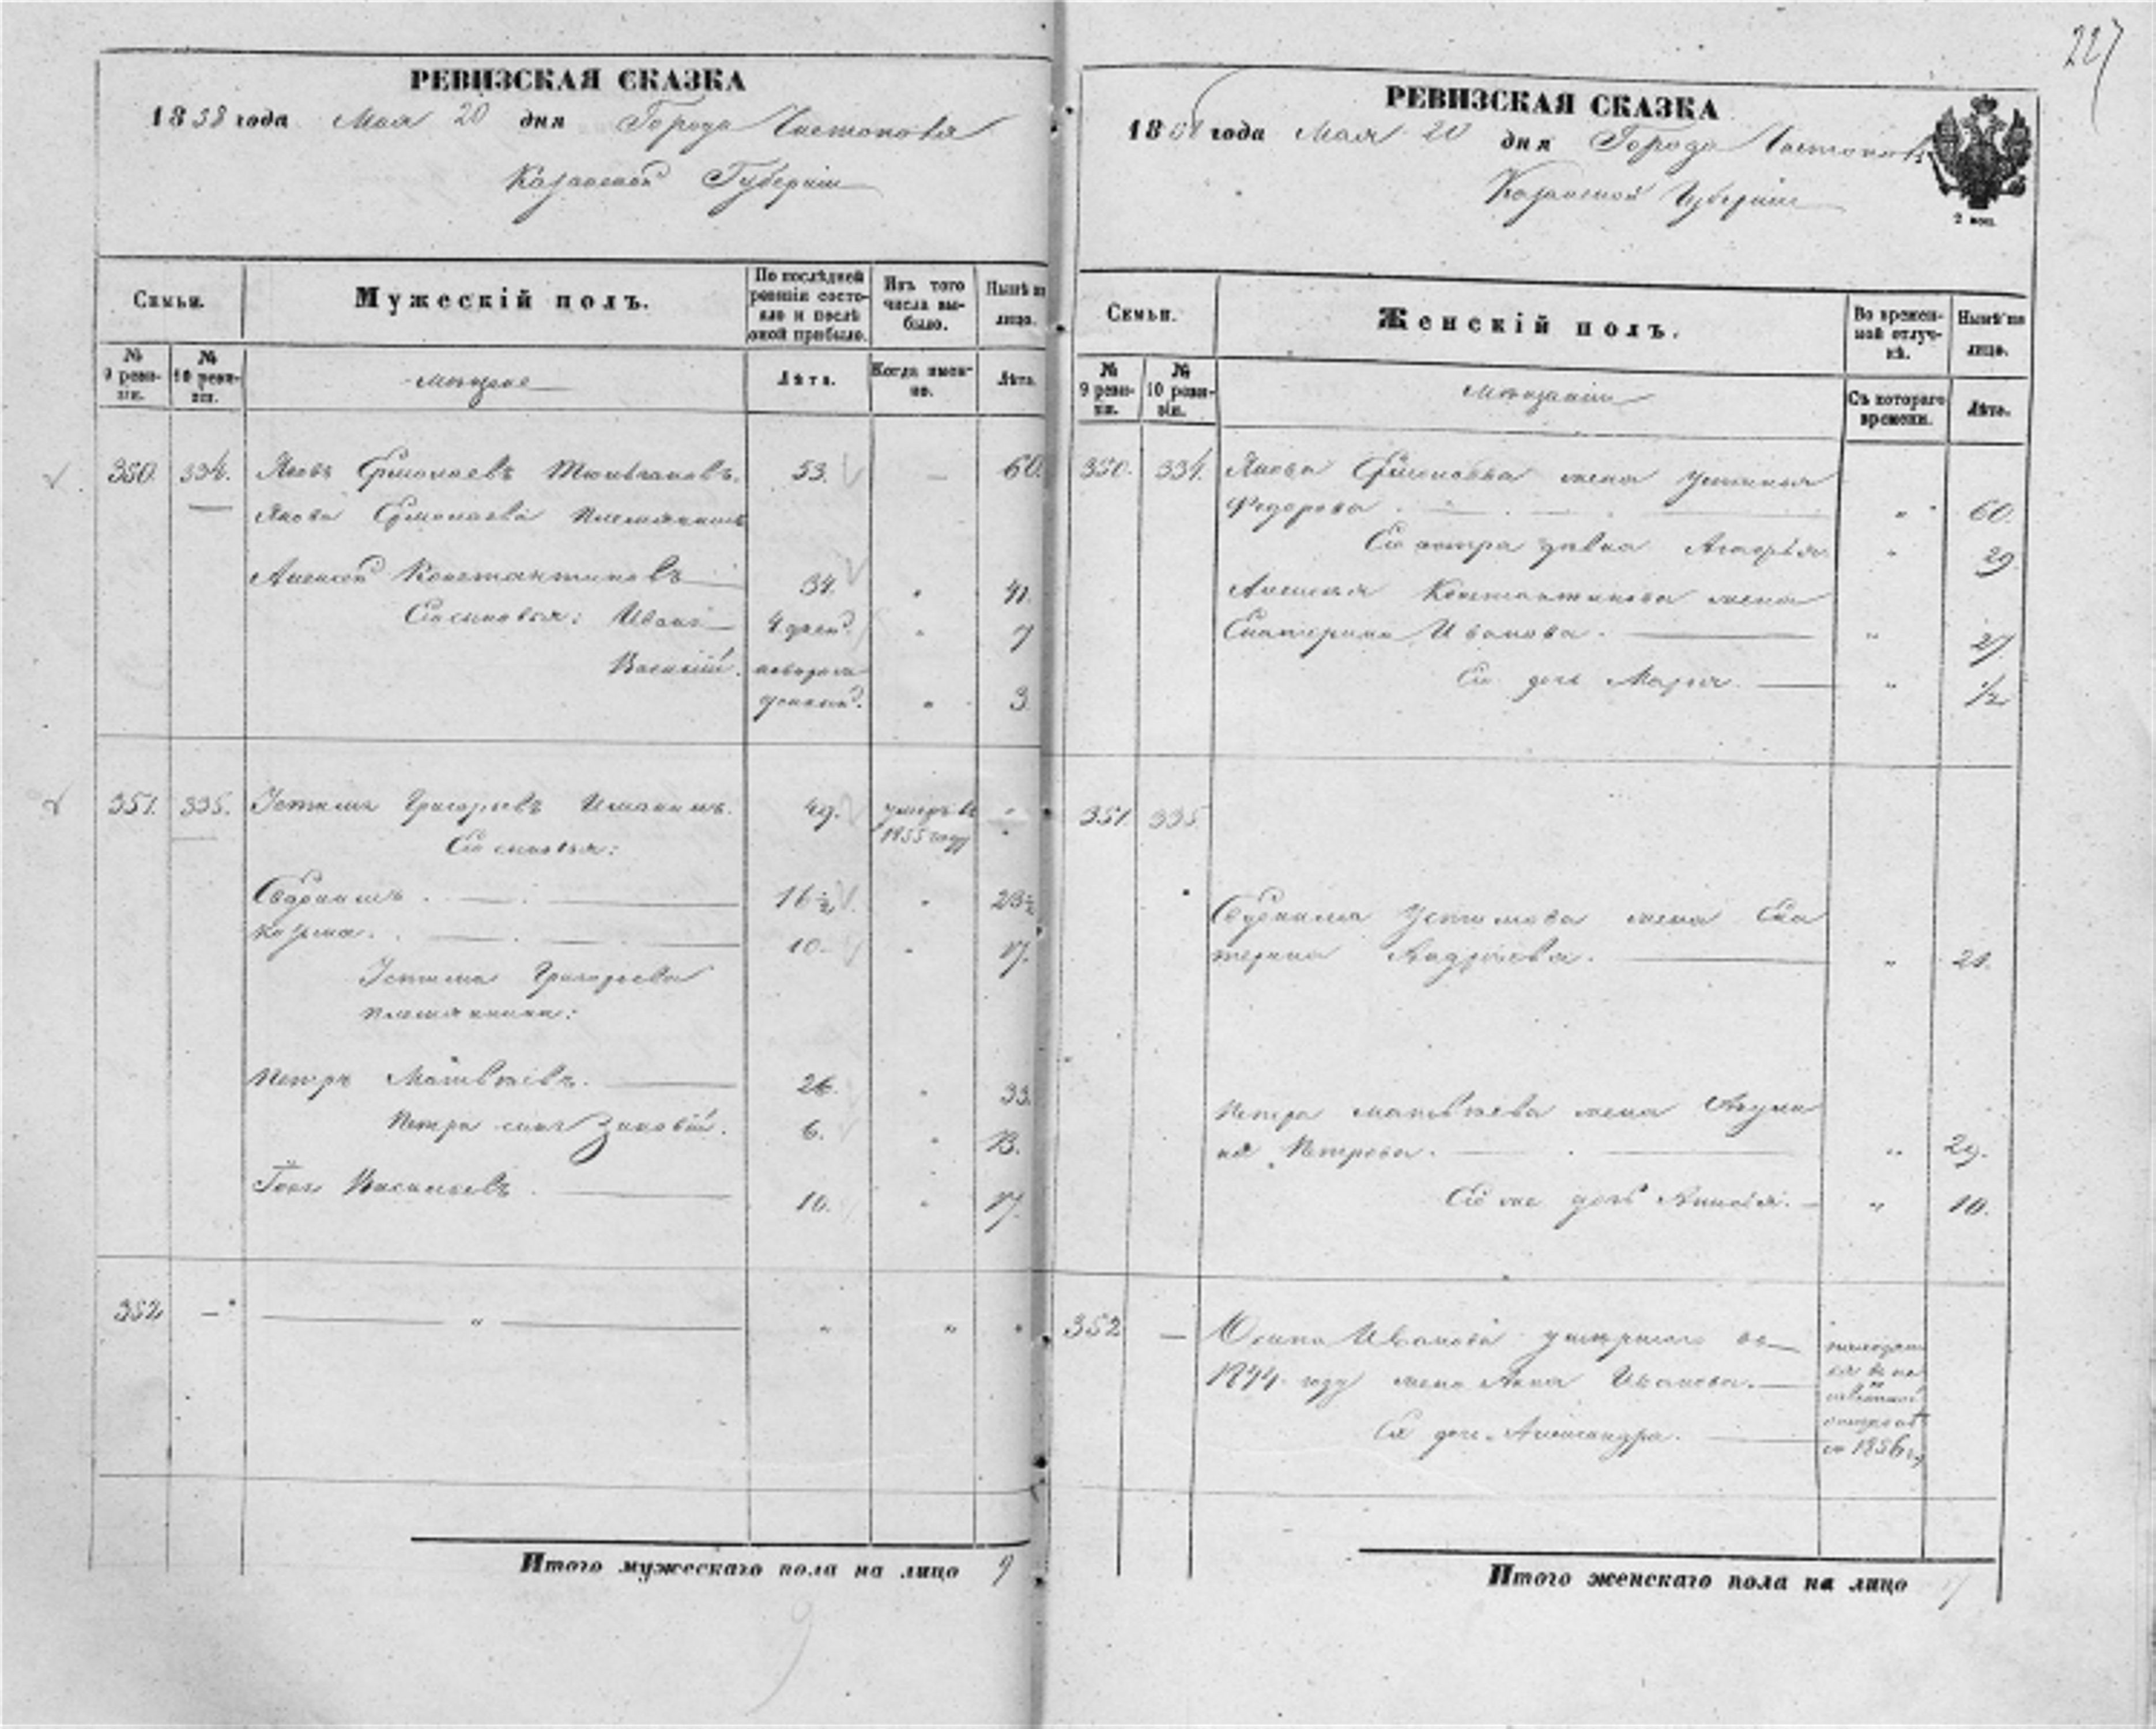 227
РЕВИЗСКАЯ СКАЗКА
1858 года Мая 20 дня Города Чистополя
Казанской Губернии
Семьи.
Мужескій полъ.
По послѣдней ревизіи состояло и послѣ оной прибыло.
Изъ того числа выбыло.
Нынѣ на лицо.
№ 9 ревизіи.
№ 10 ревизіи.
мещане
Лѣта.
Когда именно.
Лѣта.
350. 334. Яковъ Ермолаевъ 53. — 60.
Якова Ермолаева племянникъ
Алексей Константиновъ 34. " 41.
Его сыновья: Иванъ 4 дней. " 7
Василій. новорожденный. " 3
351. 335. Устинъ Григорьевъ 49. умеръ въ 1855 году "
Его сыновья:
16½ " 23½
Козма. 10. " 17.
Григорьева
племянники:
Петръ Матвѣевъ. 26. " 33.
Петра сынъ Зиновій. 6. " 13.
Васильевъ 10. " 17.
352 — " " " "
Итого мужескаго пола на лицо 9
9
РЕВИЗСКАЯ СКАЗКА
1858 года Мая 20 дня Города Чистополя
Казанской Губерніи
2 коп.
Семьи.
Женскій полъ.
Во временной отлучкѣ.
Нынѣ на лицо.
№ 9 ревизіи.
№ 10 ревизіи.
мещанки
Съ котораго времени.
Лѣта.
350. 334. Якова Ермолаева жена Устинья
Федорова " 60.
Его сестра девка " 29
Алексея Константинова жена
Екатерина Иванова. " 27.
Его дочь Марья " ½
351. 335.
жена Ека
терина Андреева. " 21.
Петра Матвѣева жена
Петрова. " 29.
Его же дочь " 10.
352 — Осипа Иванова умершаго въ
1844 году жена Анна Иванова.
Ея дочь Александра. находятся въ неизвѣстной отлучкѣ съ 1836 г.
Итого женскаго пола на лицо 7